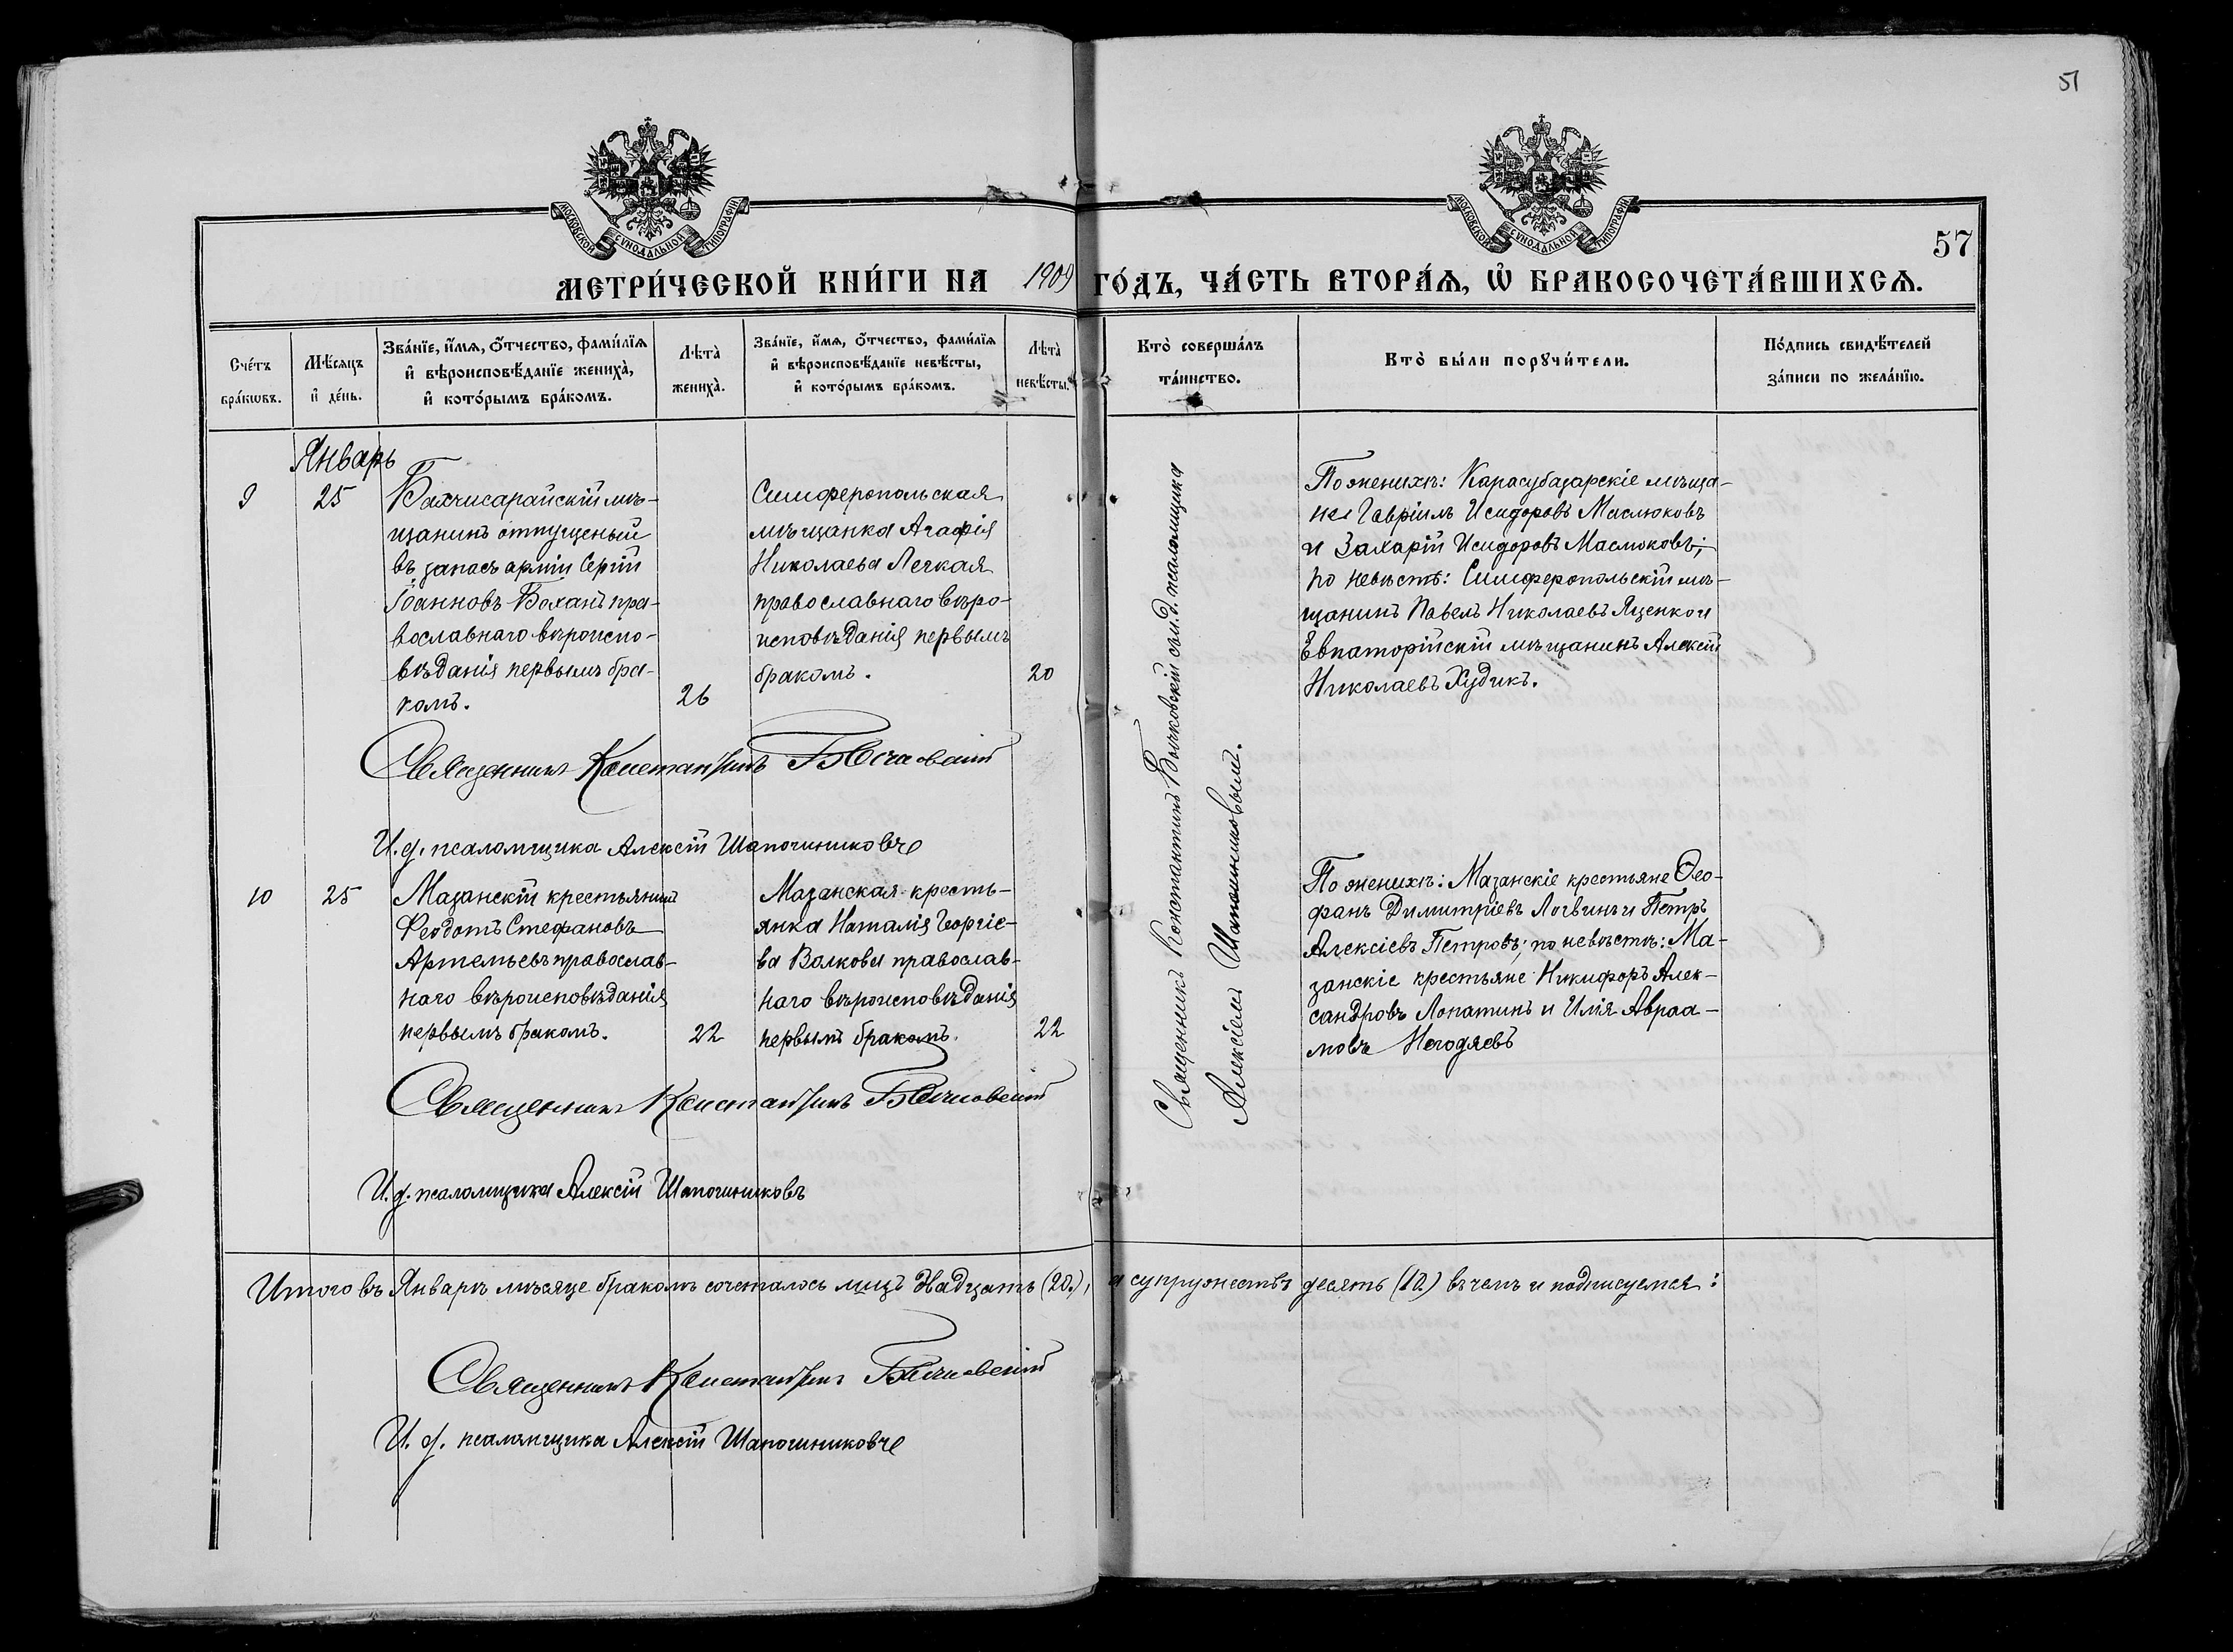 51
МОСКОВСКОЙ СУНОДАЛЬНОЙ ТИПОГРАФІИ
МОСКОВСКОЙ СУНОДАЛЬНОЙ ТИПОГРАФІИ
57
МЕТРИ́ЧЕСКОЙ КНИ́ГИ НА 1909 ГО́ДЪ, ЧА́СТЬ ВТОРА́Ѧ, Ѽ БРАКОСОЧЕТА́ВШИХСѦ.
Сче́тъ
бра́кѡвъ.
Мѣ́сяцъ
и҆ де́нь.
Зва́нїе, и҆́мѧ, ѻ҆́тчество, фами́лїѧ
и҆ вѣроисповѣ́данїе жениха̀,
и҆ кото́рымъ бра́комъ.
Лѣта̀
жениха̀.
Зва́нїе, и҆́мѧ, ѻ҆́тчество, фами́лїѧ
и҆ вѣроисповѣ́данїе невѣ́сты,
и҆ кото́рымъ бра́комъ.
Лѣта̀
невѣ́сты.
Кто̀ соверша́лъ
та́инство.
Кто̀ бы́ли порꙋчи́тели.
По́дпись свидѣ́телей
за́писи по жела́нїю.
Январь
9
25
Бахчисарайскій мѣ-
щанинъ отпущеный
въ запасъ арміи Сергій
Іоанновъ Боханъ пра-
вославнаго вѣроиспо-
вѣданія первымъ бра-
комъ.
26
Симферопольская
мѣщанка Агафія
Николаева Легкая
православнаго вѣро-
исповѣданія первымъ
бракомъ.
20
Священникъ Константинъ
Алексіемъ Шапошниковымъ.
По женихѣ: Карасубазарскіе мѣща-
не Гавріилъ Исидоровъ Маслюковъ
и Захарій Исидоровъ Маслюковъ;
по невѣстѣ: Симферопольскій мѣ-
щанинъ Павелъ Николаевъ Яценко и
Евпаторійскій мѣщанинъ Алексій
Николаевъ Худикъ.
Священникъ Константинъ
И. д. псаломщика Алексій Шапошниковъ
10
25
Мазанскій крестьянинъ
Феодотъ Стефановъ
Артемьевъ православ-
наго вѣроисповѣданія
первымъ бракомъ.
22
Мазанская кресть-
янка Наталія Георгіе-
ва Волкова православ-
наго вѣроисповѣданія
первымъ бракомъ.
22
По женихѣ: Мазанскіе крестьяне Ѳео-
фанъ Димитріевъ Логвинъ и Петръ
Алексіевъ Петровъ; по невѣстѣ: Ма-
занскіе крестьяне Никифоръ Алек-
сандровъ Лопатинъ и Илія Авраа-
мовъ Негодяевъ
Священникъ Константинъ
И. д. псаломщика Алексій Шапошниковъ
Итого въ Январѣ мѣсяце бракомъ сочеталось лицъ двадцать (20.), а супружествъ десять (10.) въ чемъ и подписуемся:
Священникъ Константинъ
И. д. псаломщика Алексій Шапошниковъ